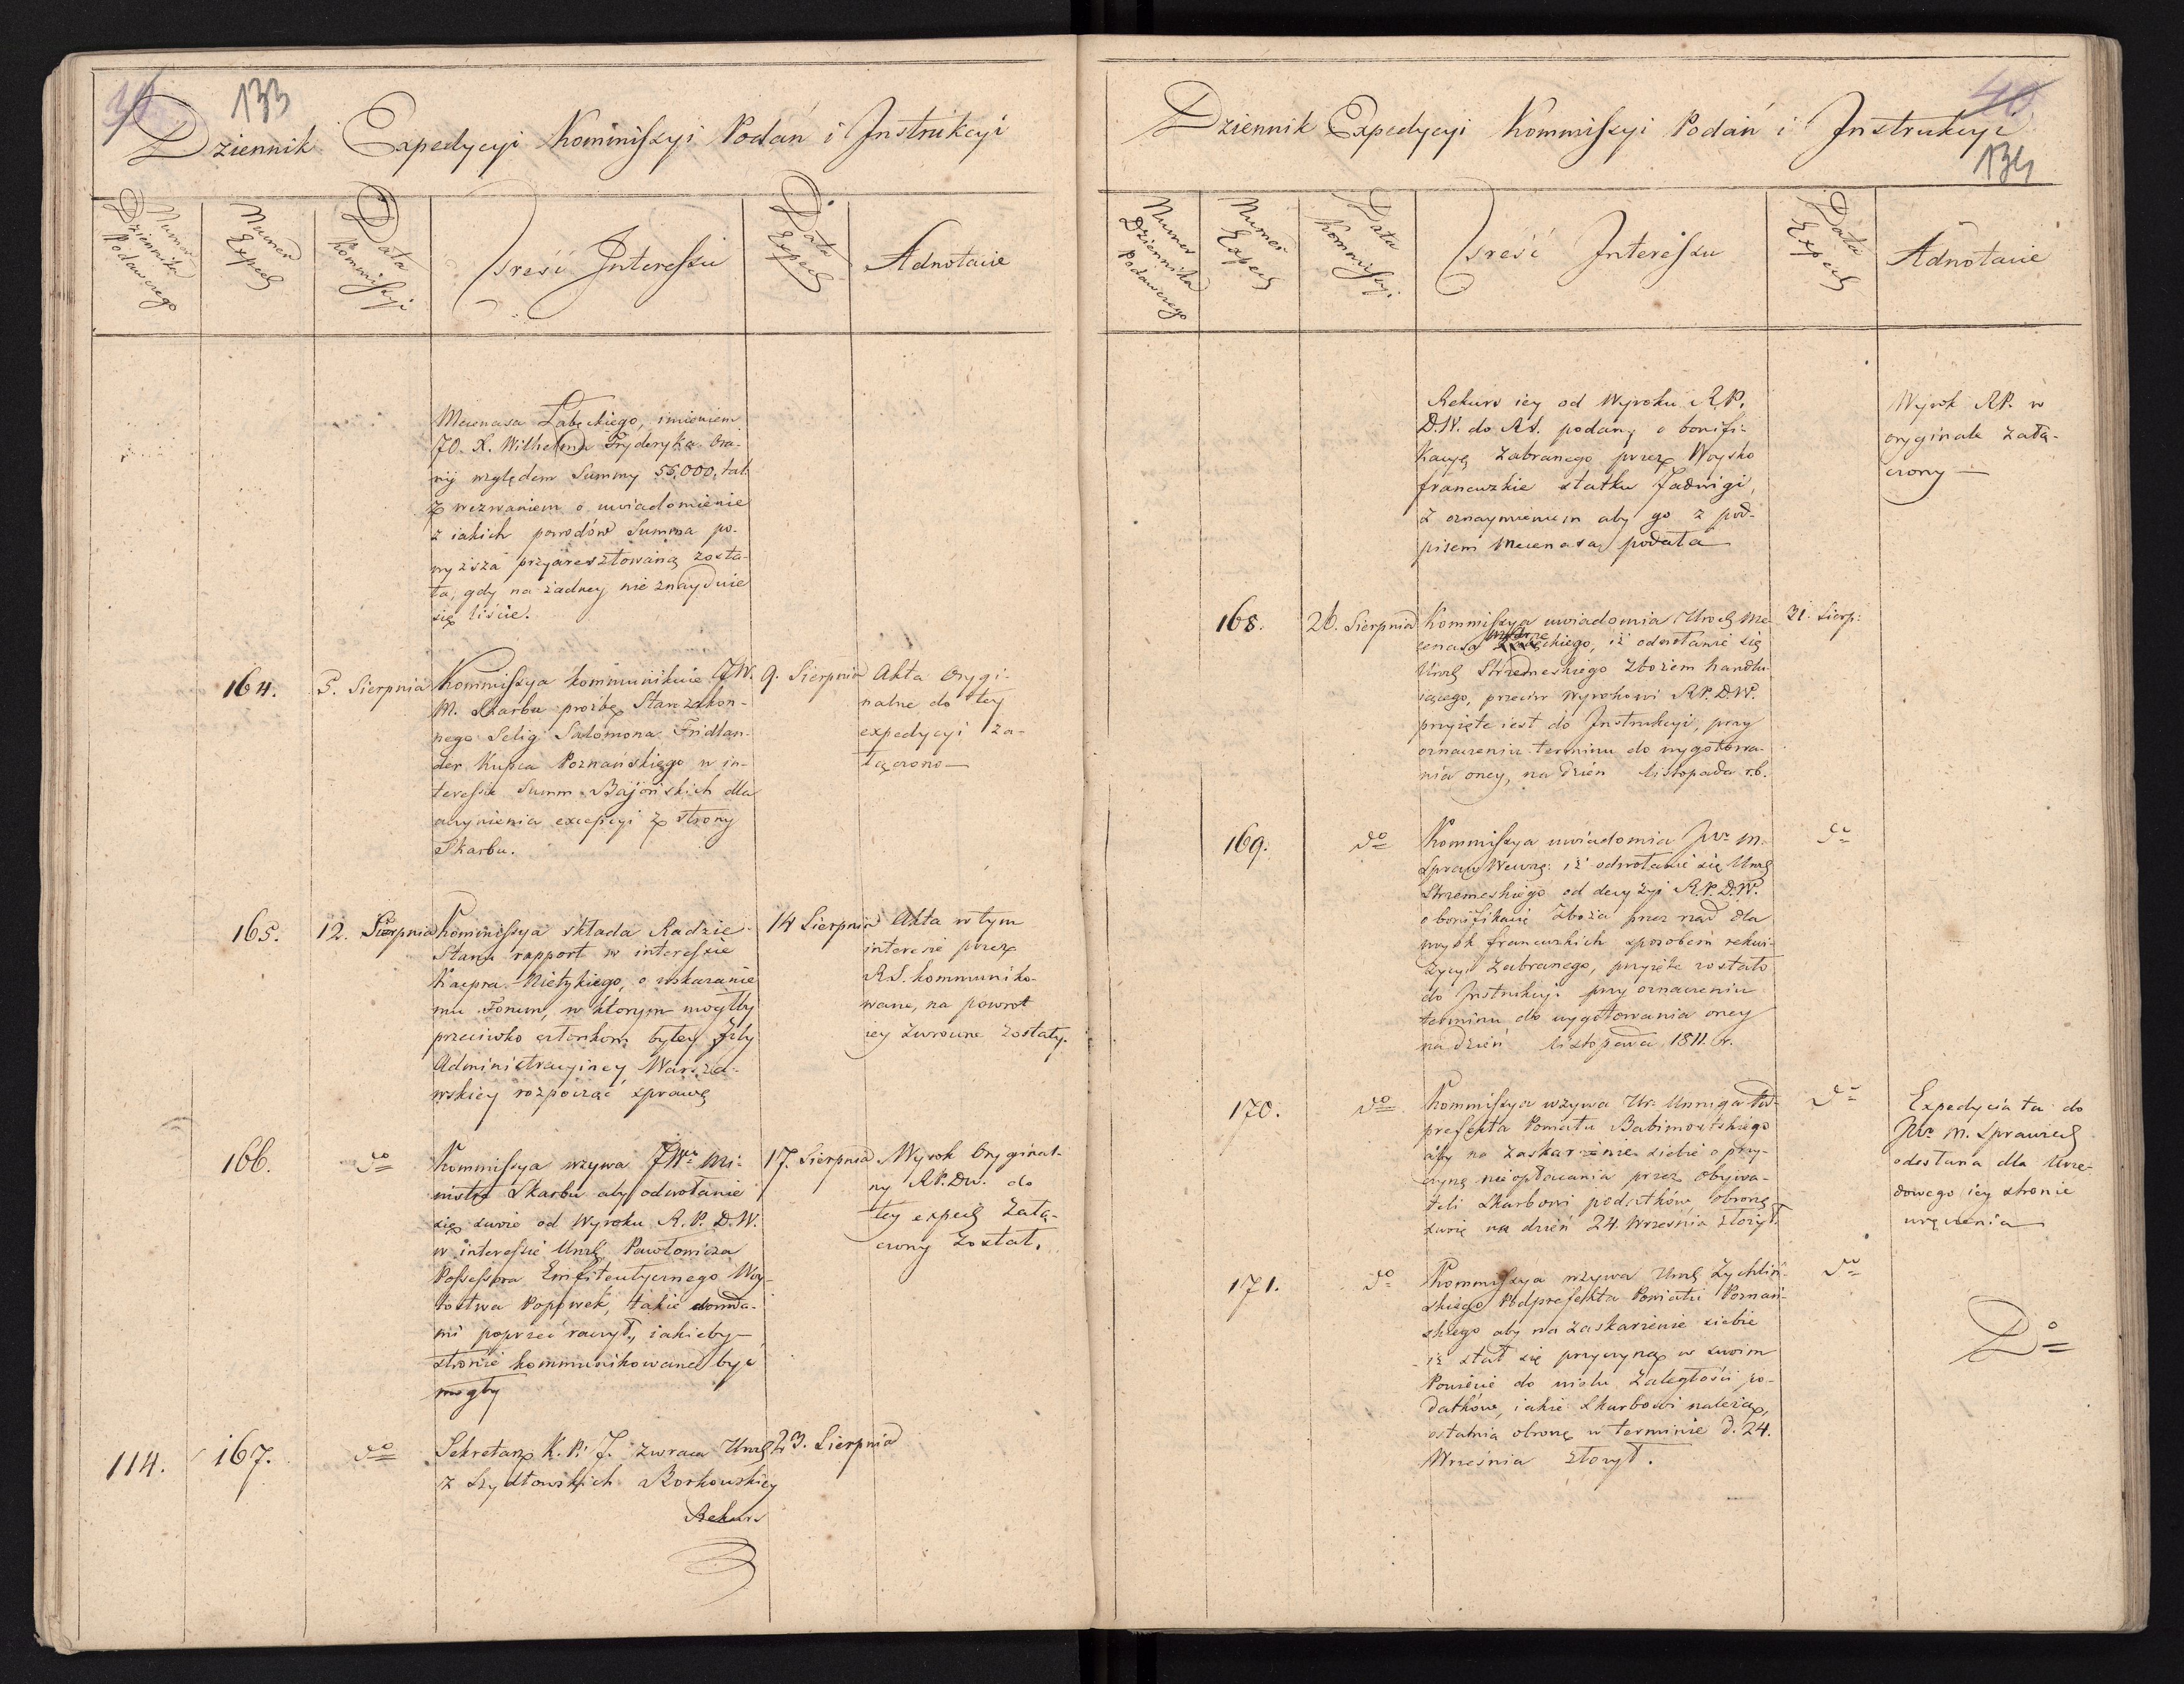 133
Dziennik Expedycyi Kommiſzyi Podań i Instrukcyi
Numer Dziennika Podawczego
Numer Exped
Data Kommiſzyi
Treść Intereſsu
Data Exped
Adnotacie
Mecenasa Łabęckiego, imieniem
JO. X. Wilhelma Fryderyka Ora-
nij względem Summy 55,000, tal.
z wezwaniem o uwiadomienie
z iakich powodów Summa po-
wyższa przyaresztowaną zosta-
ła, gdy na żadney nie znayduie
się liście.
164.
5. Sierpnia
Kommiſzya kommunikuie JW.
M. Skarbu prośbę Starozakon-
nego Selig Salomona Fridlan-
der Kupca Poznańskiego w in-
tereſsie Summ Bajońskich dla
uczynienia excepcyi z strony
Skarbu.
9. Sierpnia
Akta orygi-
nalne do tey
expedycyi za-
łączono
165.
12. Sierpnia
Kommiſsya składa Radzie
Stanu rapport w intereſsie
Kacpra Nietykiego, o wskazanie
mu Forum, w którym mogłby
przeciwko członkom byłey Izby
Administracyiney Warsza-
wskiey rozpocząć sprawę
14 Sierpnia
Akta w tym
interesie przez
R.S. kommuniko-
wane, na powrót
iey zwrócone zostały.
166.
do
Kommiſsya wzywa JWo Mi-
nistra Skarbu aby odwołanie
się swoie od Wyroku R. P. D. W.
w intereſsie Urod Pawłowicza
Poſseſsora Emfiteutycznego Woy-
tostwa Popowek, takie dowoda-
mi poprzeć raczył, iakieby
stronie kommunikowane być
mogły
17. Sierpnia
Wyrok Oryginal-
ny R.P.D.W. do
tey exped załą-
czony został.
114.
167.
do
Sekretarz K. P. J. zwraca Urod
z Szydłowskich Borkowskiey
Rekurs
23. Sierpnia
40
134
Dziennik Expedycyi Kommiſsyi Podań i Instrukcyi
Numer Dziennika Podawczego
Numer Exped
Data Kommiſsyi
Treść Intereſsu
Data Exped
Adnotacie
Rekurs iey od Wyroku R.P.
D.W. do R.S. podany o bonifi-
kacyę zabranego przez Woysko
francuzkie statku Jadwigi,
z oznaymieniem aby go z pod-
pisem Mecenasa podała
Wyrok R.P. w
oryginale załą-
czony
168.
26. Sierpnia
Kommiſsya uwiadomia Urod Me-
cenasa ckiego, iż odwołanie się
Urod Strzemeskiego zbożem handlu-
iącego, przeciw wyrokowi R.P.D.W.
przyięte iest do Instrukcyi, przy
oznaczeniu terminu do wygotowa-
nia oney, na dzień listopada r.b.
31. Sierp:
169.
do
Kommiſsya uwiadomia JWo M.
Spraw Wewnę: iż odwołanie się Urod
Strzemeskiego od decyzyi R.P.D.W.
o bonifikacię zboża przez rząd dla
woysk francuzkich sposobem rekwi-
zycyi zabranego, przyięte zostało
do Instrukcyi przy oznaczeniu
terminu do wygotowania oney
na dzień listopada 1811. r.
do
170.
do
Kommiſsya wzywa Ur. Unruga Pod-
prefekta Powiatu Babimostskiego
aby na zaskarżenie siebie o przy-
czynę nieopłacania przez obywa-
teli Skarbowi podatków, obronę
swoię na dzień 24 Września złożył.
do
Expedycia ta do
JWo M. Sprawied
odesłana dla Urzę-
dowego iey stronie
wręczenia
171.
do
Kommiſsya wzywa Urod Zychliń-
skiego Podprefekta Powiatu Poznań-
skiego aby na zaskarżenie siebie
iż stał się przyczyną w swoim
Powiecie do wielu zaległości po-
datków, iakie Skarbowi należą,
ostatnią obronę w terminie d. 24.
Września złożył.
do
Do